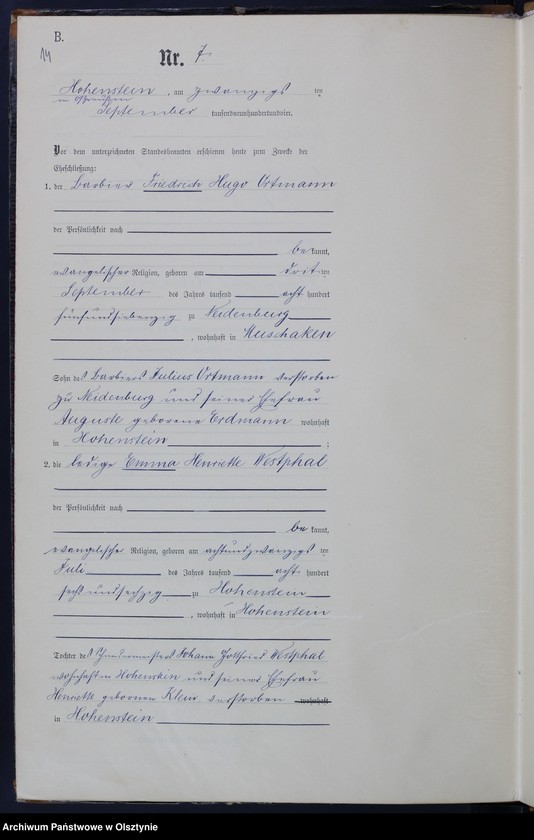 B.
14
Nr. 7.
Hohenstein, am zwanzigsten
in Ostpreußen
September tausendneunhundertundvier.
Vor dem unterzeichneten Standesbeamten erschienen heute zum Zwecke der
Eheschließung:
1. der Barbier Friedrich Hugo Ortmann
der Persönlichkeit nach
be kannt,
evangelischer Religion, geboren am dritten
September des Jahres tausend acht hundert
fünfundsiebenzig zu Neidenburg
, wohnhaft in Muschaken
Sohn des Barbiers Julius Ortmann verstorben
zu Neidenburg und seiner Ehefrau
Auguste geborene Erdmann wohnhaft
in Hohenstein ;
2. die ledige Emma Henriette Westphal
der Persönlichkeit nach
be kannt,
evangelischer Religion, geboren am achtundzwanzigsten
Juli des Jahres tausend acht hundert
sechsundsechzig zu Hohenstein
, wohnhaft in Hohenstein
Tochter des Johann Gottfried Westphal
wohnhaft in Hohenstein und seiner Ehefrau
Henriette geborenen Klein, verstorben wohnhaft
in Hohenstein
Archiwum Państwowe w Olsztynie